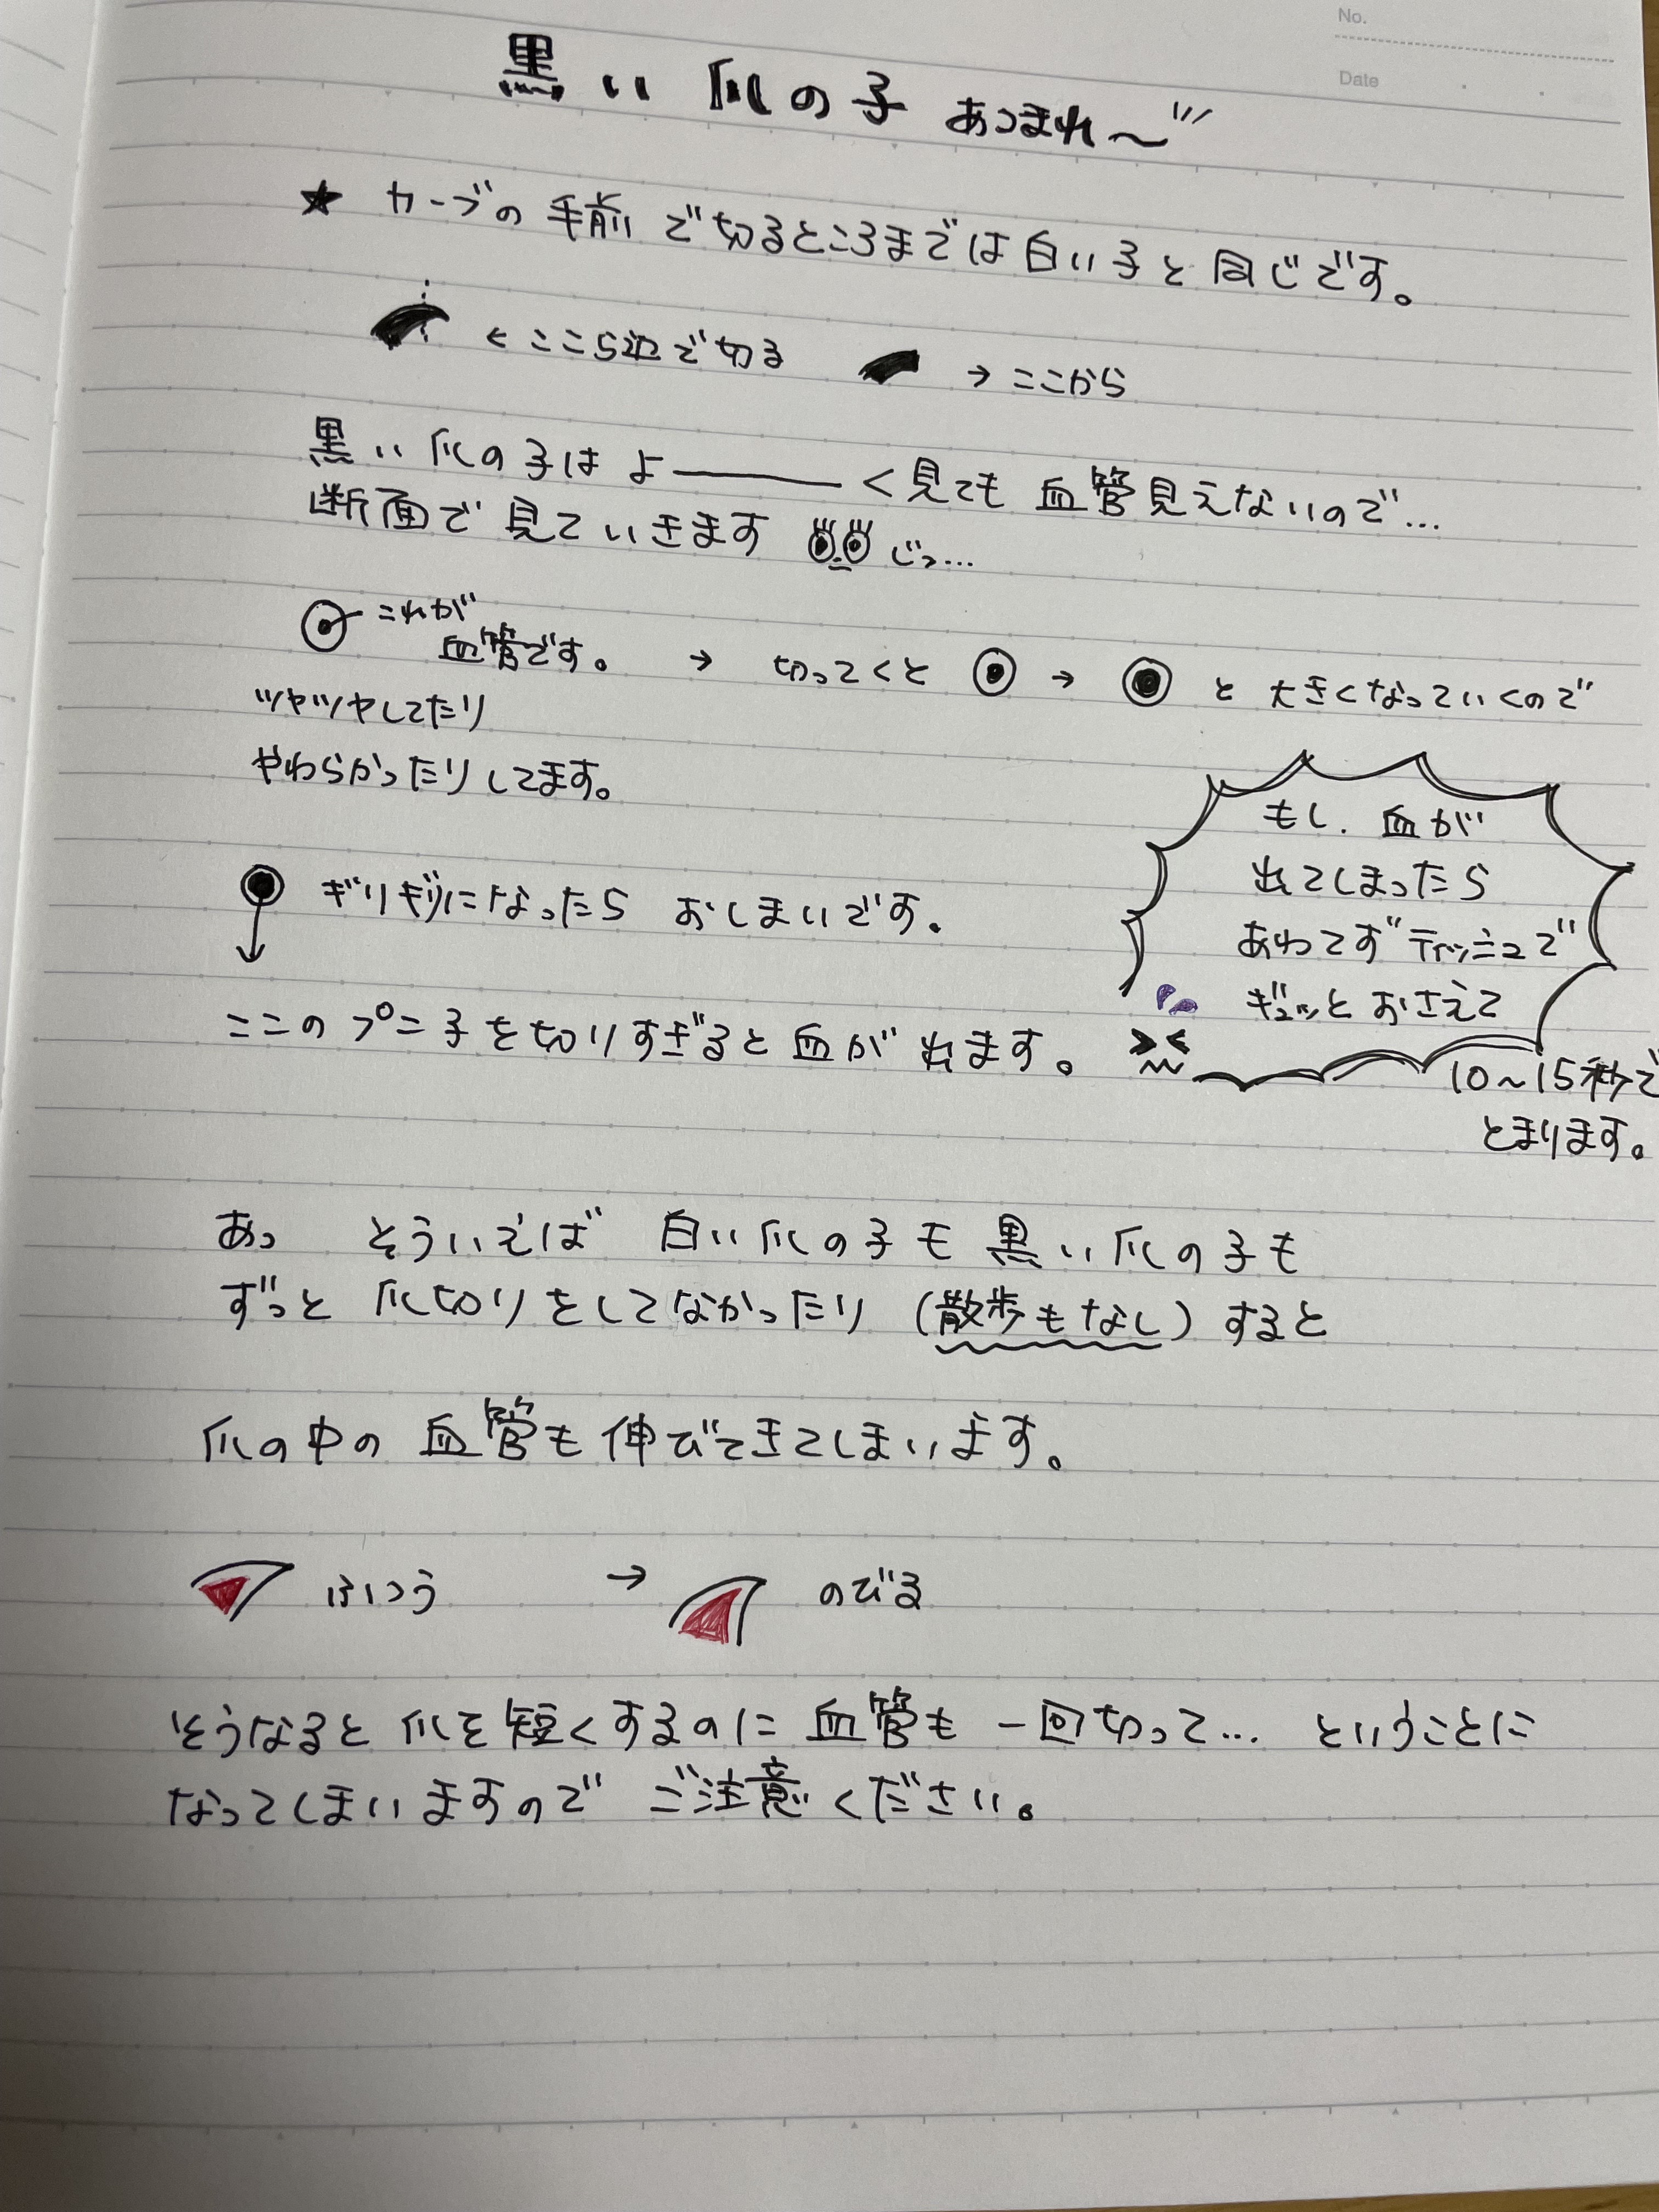 No.
Date
黒い爪の子 あつまれ〜
★ カーブの手前で切るところまでは白い子と同じです。
←ここら辺で切る →ここから
黒い爪の子はよ―――く見ても血管見えないので…
断面で見ていきます じっ…
これが
血管です。 → 切ってくと → と大きくなっていくので
ツヤツヤしてたり
やわらかったりしてます。
ギリギリになったら おしまいです。
ここのプニ子を切りすぎると血が出ます。
もし、血が
出てしまったら
あわてず ティッシュで
ギュッとおさえて
10〜15秒で
とまります。
あっ そういえば 白い爪の子も黒い爪の子も
ずっと爪切りをしてなかったり(散歩もなし)すると
爪の中の血管も伸びてきてしまいます。
ふつう → のびる
そうなると爪を短くするのに血管も一回切って… ということに
なってしまいますので ご注意ください。